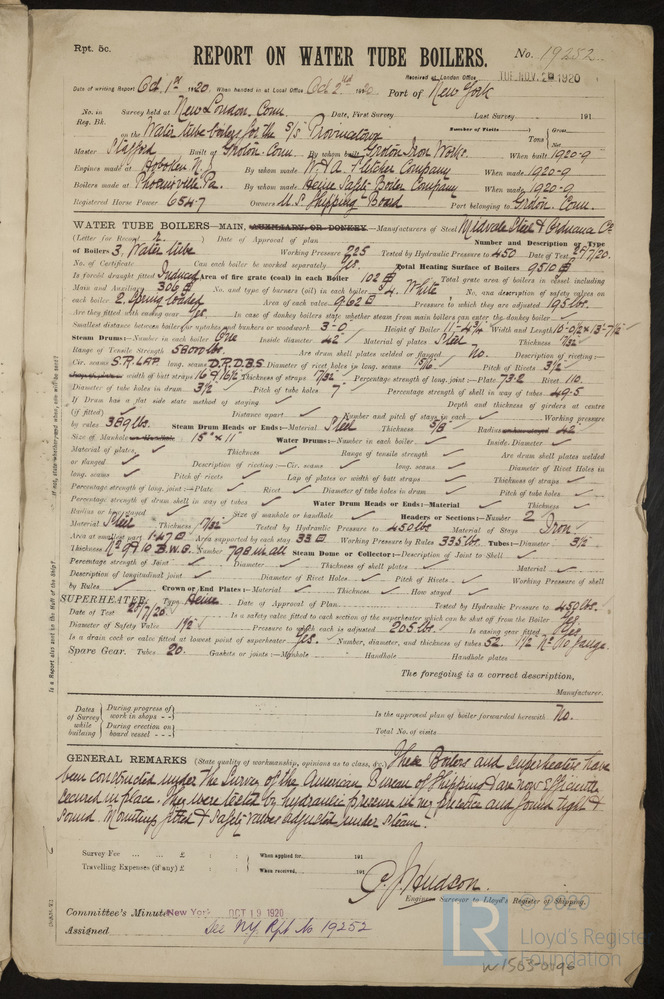 Rpt. 5c.
REPORT ON WATER TUBE BOILERS.
No. 19252
Received at London Office TUE. NOV. 2 1920
Date of writing Report Oct 1st 1920 When handed in at Local Office Oct 2nd 1920 Port of New York
No. in Reg. Bk. Survey held at New London. Conn. Date, First Survey Last Survey 191
on the Water tube boilers for the S/S Provincetown (Number of Visits) Tons Gross Net
Master Stafford Built at Groton. Conn. By whom built Groton Iron Works. When built 1920-9
Engines made at Hoboken N.J. By whom made W. & A. Fletcher Company When made 1920-9
Boilers made at Phoenixville Pa. By whom made Heine Safety Boiler Company When made 1920-9
Registered Horse Power 654.7 Owners U.S. Shipping Board Port belonging to Groton. Conn.
WATER TUBE BOILERS—MAIN, AUXILIARY, OR DONKEY.—Manufacturers of Steel Midvale Steel & Ordnance Co
(Letter for Record ) Date of Approval of plan Number and Description or Type
of Boilers 3. Water tube Working Pressure 225 Tested by Hydraulic Pressure to 450 Date of Test 29/7/20.
No. of Certificate Can each boiler be worked separately Yes. Total Heating Surface of Boilers 9510
Is forced draught fitted Induced Area of fire grate (coal) in each Boiler 102 Total grate area of boilers in vessel including
Main and Auxiliary 306 No. and type of burners (oil) in each boiler 4. White No. and description of safety valves on
each boiler 2. Spring loaded Area of each valve 9.62 Pressure to which they are adjusted 195 lbs.
Are they fitted with easing gear Yes. In case of donkey boilers state whether steam from main boilers can enter the donkey boiler
Smallest distance between boiler or uptakes and bunkers or woodwork 3-0 Height of Boiler 11-4¾ Width and Length 10-0½ x 13-7½
Steam Drums:—Number in each boiler One Inside diameter 42" Material of plates Steel Thickness 7/32
Range of Tensile Strength 58000 lbs. Are drum shell plates welded or flanged No. Description of riveting:—
Cir. seams S.R. LAP. long. seams D.R.D.B.S. Diameter of rivet holes in long. seams 15/16 Pitch of Rivets 3½
width of butt straps Thickness of straps 7/32 Percentage strength of long. joint:—Plate 73.2 Rivet 110.
Diameter of tube holes in drum 3½ Pitch of tube holes 7" Percentage strength of shell in way of tubes 49.5
If Drum has a flat side state method of staying Depth and thickness of girders at centre
(if fitted) Distance apart Number and pitch of stays in each Working pressure
by rules 389 lbs. Steam Drum Heads or Ends:—Material Steel Thickness 5/8" Radius 42
Size of Manhole 15" x 11" Water Drums:—Number in each boiler Inside Diameter
Material of plates Thickness Range of tensile strength Are drum shell plates welded
or flanged Description of riveting:—Cir. seams long. seams Diameter of Rivet Holes in
long. seams Pitch of rivets Lap of plates or width of butt straps Thickness of straps
Percentage strength of long. joint:—Plate Rivet Diameter of tube holes in drum Pitch of tube holes
Percentage strength of drum shell in way of tubes Water Drum Heads or Ends:—Material Thickness
Radius or how stayed Size of manhole or handhole Headers or Sections:—Number 2
Material Steel Thickness 7/32 Tested by Hydraulic Pressure to 450 lbs. Material of Stays Iron.
Area at smallest part 1.47 Area supported by each stay 33 Working Pressure by Rules 335 lbs. Tubes:—Diameter 3½
Thickness No 9 & 10 B.W.G. Number 798 in all Steam Dome or Collector:—Description of Joint to Shell
Percentage strength of Joint Diameter Thickness of shell plates Material
Description of longitudinal joint Diameter of Rivet Holes Pitch of Rivets Working Pressure of shell
by Rules Crown or End Plates:—Material Thickness How stayed
SUPERHEATER. Type Heine Date of Approval of Plan Tested by Hydraulic Pressure to 450 lbs.
Date of Test 29/7/20. Is a safety valve fitted to each section of the superheater which can be shut off from the Boiler Yes.
Diameter of Safety Valve 1½" Pressure to which each is adjusted 205 lbs. Is easing gear fitted Yes.
Is a drain cock or valve fitted at lowest point of superheater Yes. Number, diameter, and thickness of tubes 52. 1½ No 10 gauge.
Spare Gear. Tubes 20. Gaskets or joints:—Manhole Handhole Handhole plates
The foregoing is a correct description,
Manufacturer.
Dates of Survey while building
During progress of work in shops - -
During erection on board vessel - - -
Is the approved plan of boiler forwarded herewith No.
Total No. of visits
GENERAL REMARKS (State quality of workmanship, opinions as to class, &c.) These Boilers and Superheaters have
been constructed under the Survey of the American Bureau of Shipping & are now efficiently
secured in place. They were tested by hydraulic pressure in my presence and found tight &
sound. Mountings fitted & Safety Valves adjusted under steam.
Survey Fee ... ... £ : : When applied for, 191
Travelling Expenses (if any) £ : : When received, 191
P. J. Hudson.
Engineer Surveyor to Lloyd's Register of Shipping.
Committee's Minute New York OCT 19 1920
Assigned See NY. Rpt No 19252
Is a Report also sent on the Hull of the Ship?
If not, state whether, and when, one will be sent?
© 2020
LR
Lloyd's Register
Foundation
W1503-0096